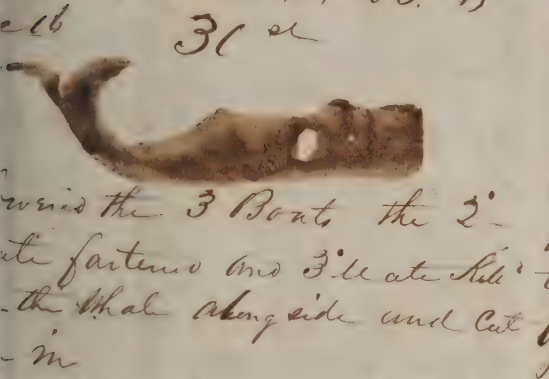 31 st
wered the 3 Boats the 2d
ate fastened and 3d Mate Kild
the Whale along side and Cut
in